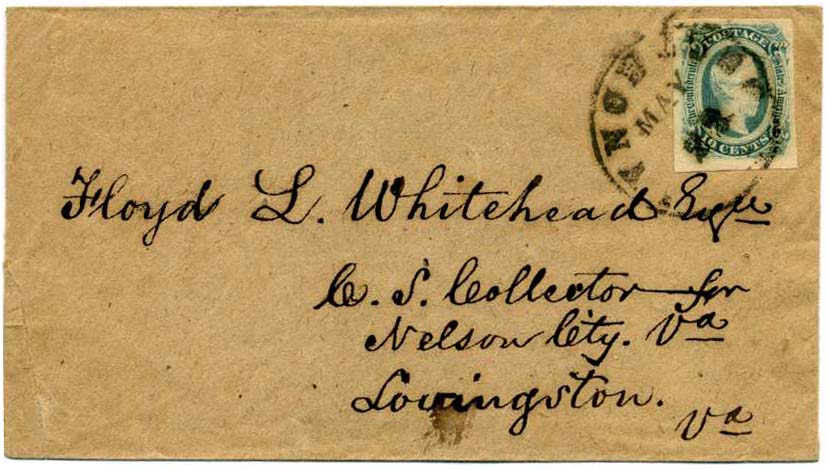 POSTAGE
The Confederate States of America
10 CENTS
MAY
Floyd L. Whitehead Esqre
C. S. Collector for
Nelson Cty. Va
Lovingston.
Va